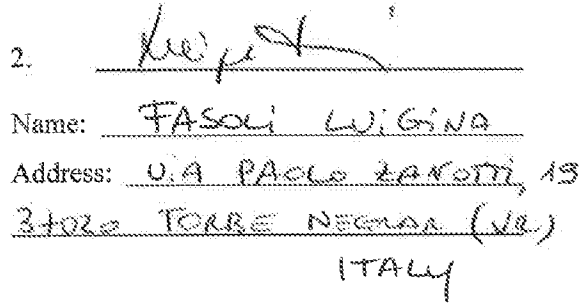 2.
Name: FASOLI LUIGINA
Address: VIA PAOLO ZANOTTI, 19
37020 TORBE NEGRAR (VR)
ITALY